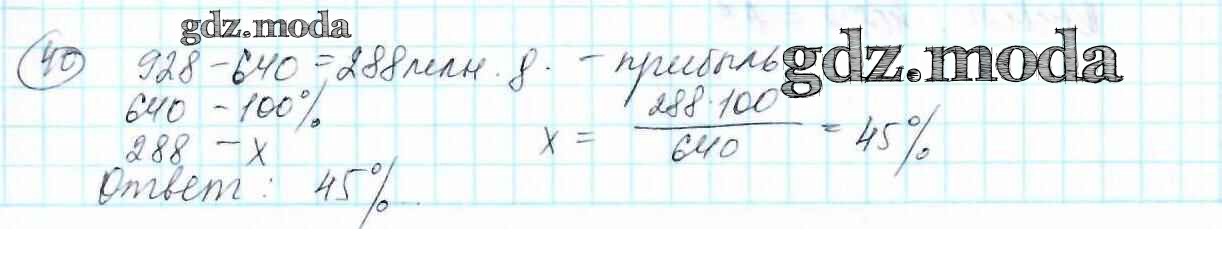 gdz.moda
40 928 - 640 = 288 млн. д. - прибыль
gdz.moda
640 - 100%
288 - x
x = 288·100 / 640 = 45%
Ответ: 45%.